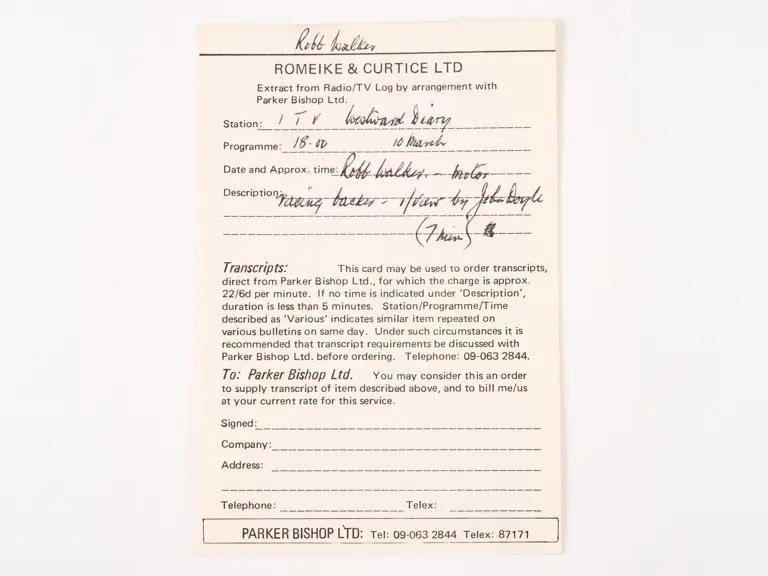 Robb Walker
ROMEIKE & CURTICE LTD
Extract from Radio/TV Log by arrangement with
Parker Bishop Ltd.
Station: I T V Westward Diary
Programme: 18.00 10 March
Date and Approx. time: Robb Walker - motor
Description: racing backer - i/view by John Doyle
(7 min)
Transcripts: This card may be used to order transcripts,
direct from Parker Bishop Ltd., for which the charge is approx.
22/6d per minute. If no time is indicated under 'Description',
duration is less than 5 minutes. Station/Programme/Time
described as 'Various' indicates similar item repeated on
various bulletins on same day. Under such circumstances it is
recommended that transcript requirements be discussed with
Parker Bishop Ltd. before ordering. Telephone: 09-063 2844.
To: Parker Bishop Ltd. You may consider this an order
to supply transcript of item described above, and to bill me/us
at your current rate for this service.
Signed:
Company:
Address:
Telephone: Telex:
PARKER BISHOP LTD: Tel: 09-063 2844 Telex: 87171